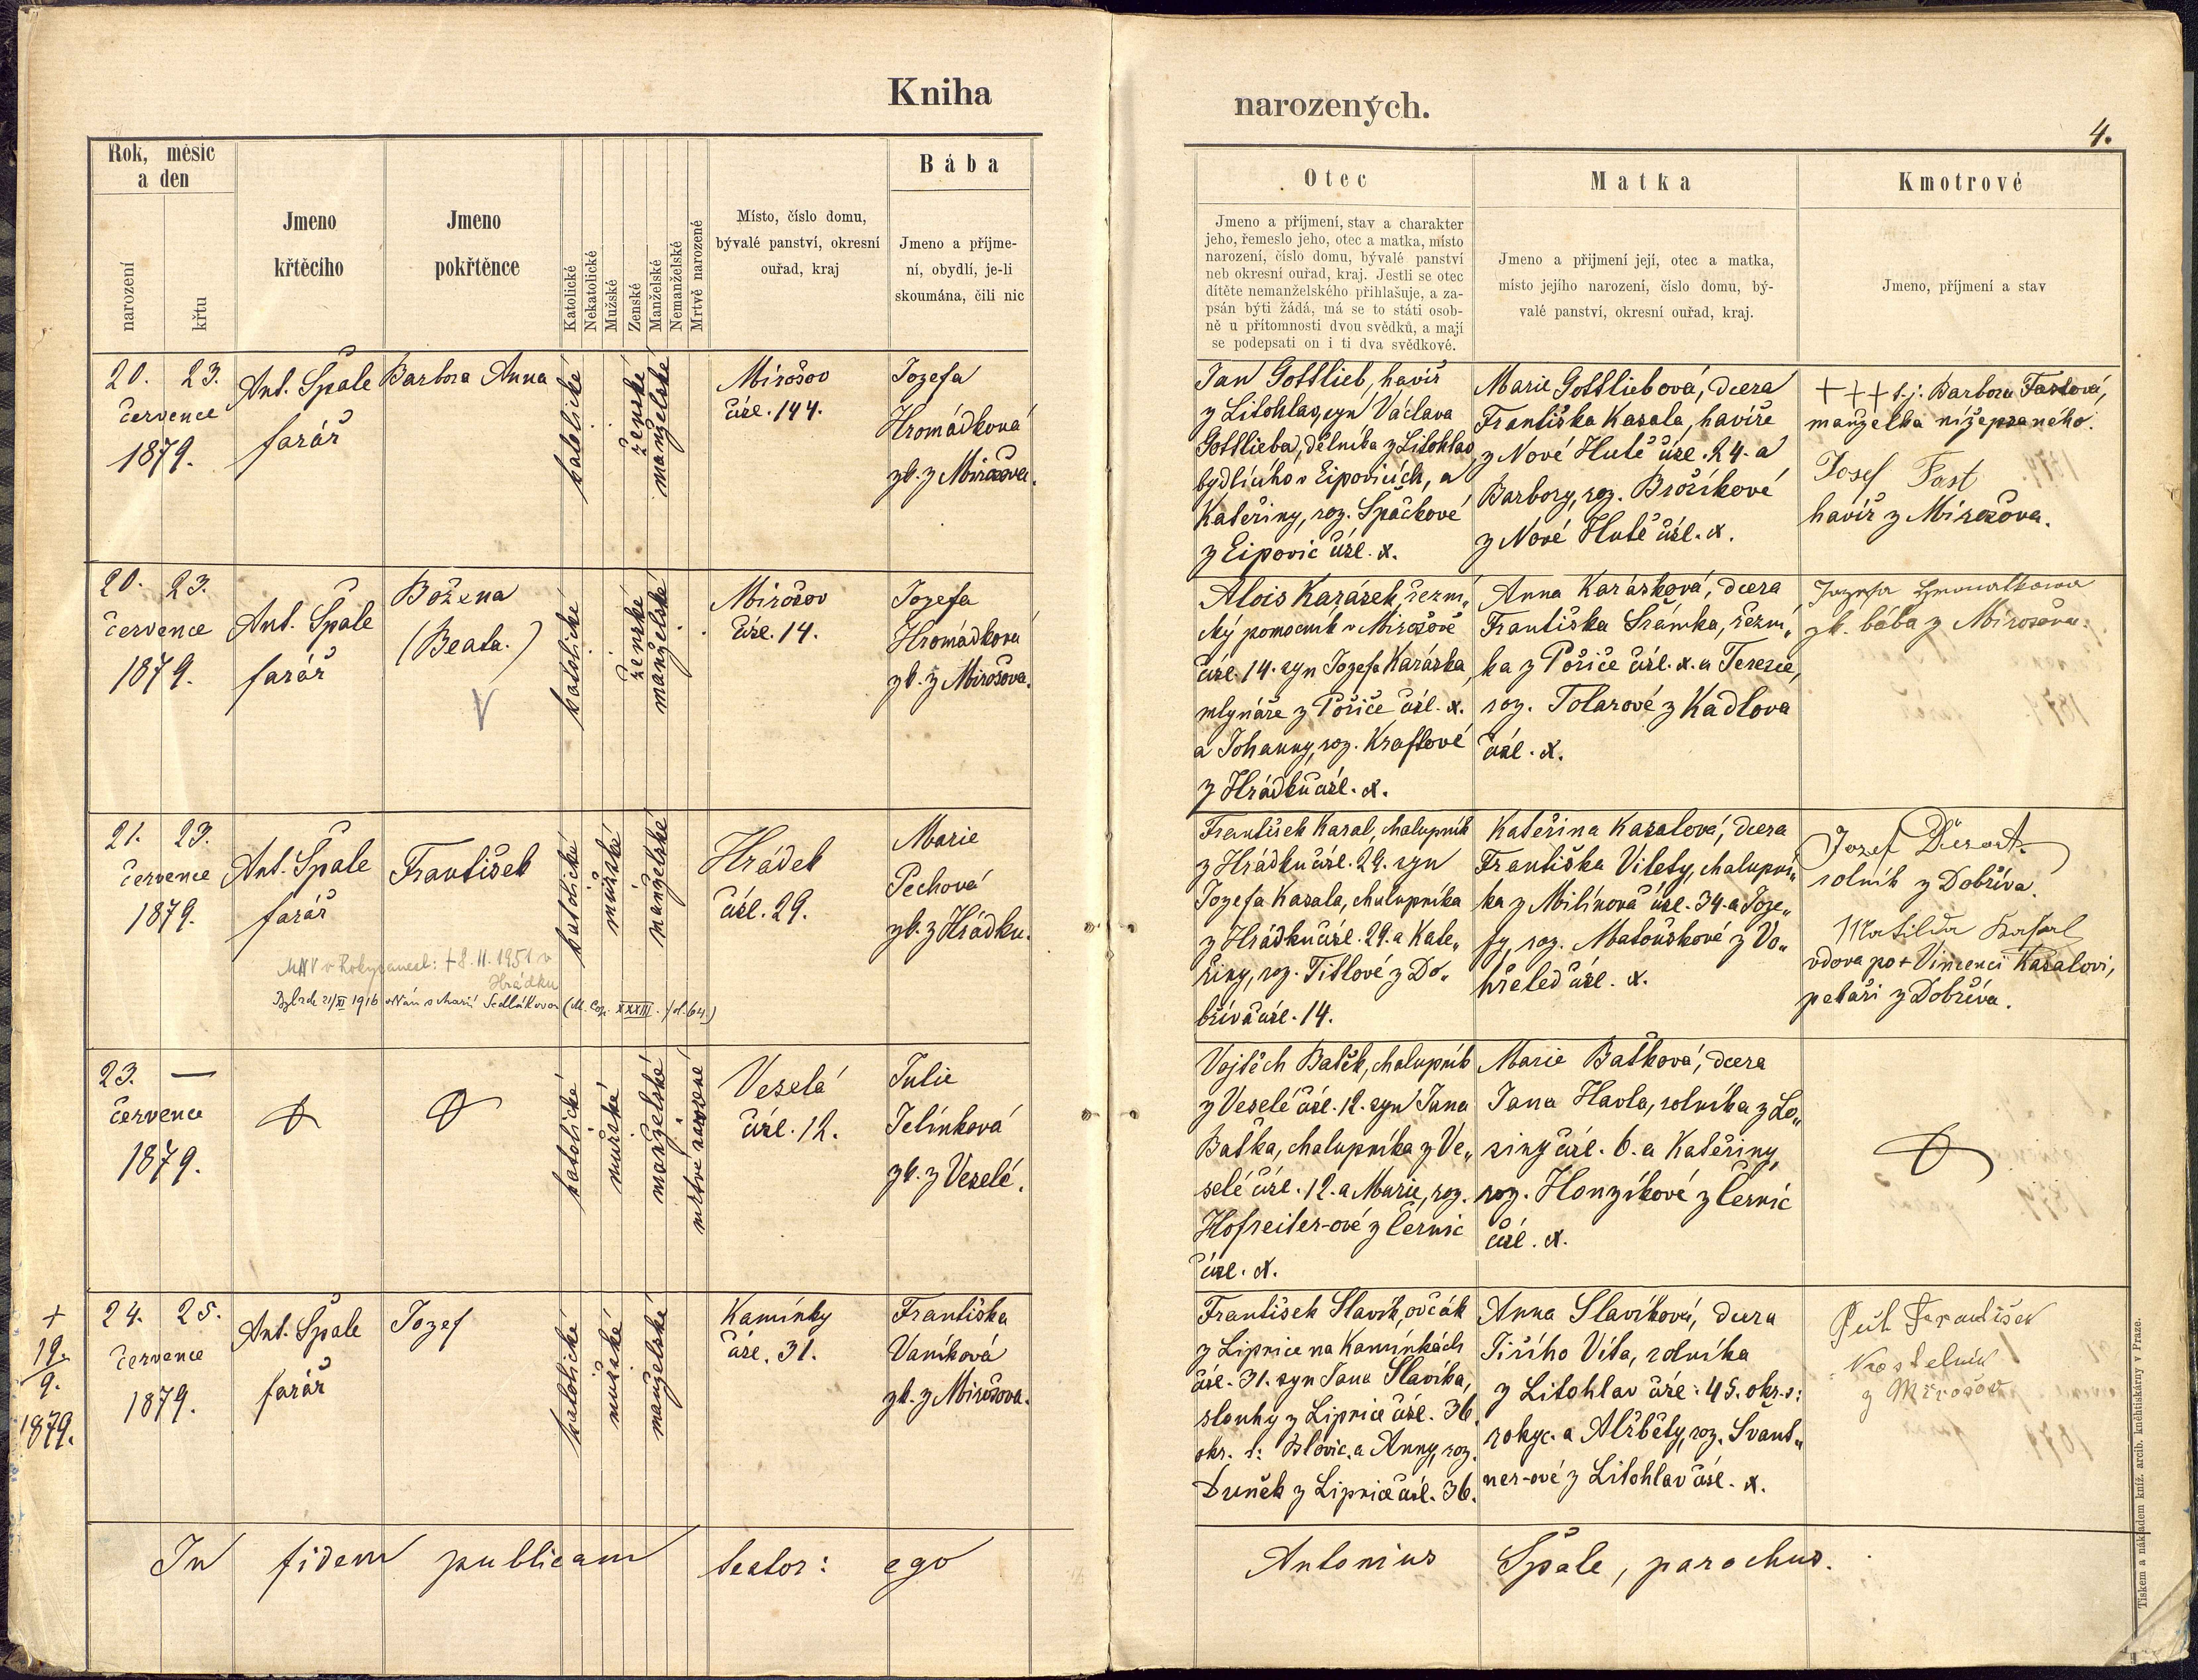 Kniha
narozených.
4.
Rok, měsíc
a den
narození
křtu
Jmeno
křtěcího
Jmeno
pokřtěnce
Katolické
Nekatolické
Mužské
Ženské
Manželské
Nemanželské
Mrtvě narozené
Místo, číslo domu,
bývalé panství, okresní
ouřad, kraj
Bába
Jmeno a příjme-
ní, obydlí, je-li
skoumána, čili nic
Otec
Jmeno a příjmení, stav a charakter
jeho, řemeslo jeho, otec a matka, místo
narození, číslo domu, bývalé panství
neb okresní ouřad, kraj. Jestli se otec
dítěte nemanželského přihlašuje, a za-
psán býti žádá, má se to státi osob-
ně u přítomnosti dvou svědků, a mají
se podepsati on i ti dva svědkové.
Matka
Jmeno a přijmení její, otec a matka,
místo jejího narození, číslo domu, bý-
valé panství, okresní ouřad, kraj.
Kmotrové
Jmeno, příjmení a stav
20. 23.
července
1879.
Ant. Špale
farář
Barbora Anna
katolické
ženské
manželské
Mirošov
čísl. 144.
Jozefa
Hromádková
zk. z Mirošova.
Jan Gottlieb, havíř
z Litohlav, syn Václava
Gottlieba, dělníka z Litohlav
bydlícího v Ejpovicích, a
Kateřiny, roz. Špačkové
z Eipovic čísl. x.
Marie Gottliebová, dcera
Františka Kasala, havíře
z Nové Hutě čísl. 24. a
Barbory, roz. Brožíkové
z Nové Hutě čísl. x.
+++ t. j. Barbora Fastová,
manželka nížepsaného.
Josef Fast
havíř z Mirošova.
20. 23.
července
1879.
Ant. Špale
farář
Božena
(Beata.)
V
katolické
ženské
manželské
Mirošov
čísl. 14.
Jozefa
Hromádková
zk. z Mirošova.
Alois Karásek, řezni„
cký pomocník v Mirošově
čísl. 14. syn Jozefa Karáska,
mlynáře z Pořiče čísl. x.
a Johanny, roz. Kraftové
z Hrádku čísl. x.
Anna Karásková, dcera
Františka Šrámka, řezní„
ka z Pořiče čísl. x. a Terezie,
roz. Tolarové z Kadlova
čísl. x.
zk. bába z Mirošova.
21. 23.
července
1879.
Ant. Špale
farář
František
katolické
mužské
manželské
Hrádek
čísl. 29.
Marie
Pechová
zk. z Hrádku.
František Kasal, chalupník
z Hrádku čísl. 29. syn
Jozefa Kasala, chalupníka
z Hrádku čísl. 29. a Kate„
řiny, roz. Titlové z Do„
bříva čísl. 14.
Kateřina Kasalová, dcera
Františka Vitety, chalupní„
ka z Milínova čísl. 34. a Joze„
fy, roz. Matouškové z Vo„
hřeled čísl. x.
Jozef
rolník z Dobříva.
Matilda Kasal
vdova po + Vincenci Kasalovi,
pekaři z Dobříva.
MNV v Rokycanech: + 8. 11. 1951 v
Hrádku
21/XI 1916 s Marií Sedlákovou (M. Cop. XXXIII. fol. 64.)
23. —
července
1879.
katolické
mužské
manželské
mrtvě narozené
Veselá
čísl. 12.
Julie
Jelínková
zk. z Veselé.
Vojtěch Batěk, chalupník
z Veselé čísl. 12. syn Jana
Baťka, chalupníka z Ve„
selé čísl. 12. a Marie, roz.
Hofreiter-ové z Černic
čísl. x.
Marie Baťková, dcera
Jana Havla, rolníka z Lo„
siny čísl. 6. a Kateřiny,
roz. Honzíkové z Černic
čísl. x.
+
19.
9.
1879.
24. 25.
července
1879.
Ant. Špale
farář
Jozef
katolické
mužské
manželské
Kamínky
čísl. 31.
Františka
Vaníková
zk. z Mirošova.
František Slavík, ovčák
z Lipnice na Kamínkách
čísl. 31. syn Jana Slavíka,
slouhy z Lipnice čísl. 36.
okr. s: Blovic. a Anny, roz.
Duněk z Lipnice čísl. 36.
Anna Slavíková, dcera
Jiřího Víta, rolníka
z Litohlav čísl. 45. okr. s:
rokyc. a Alžběty, roz. Švant„
ner-ové z Litohlav čísl. x.
František
Kostelník
z Mirošov
In fidem publicam testor: ego Antonius Špale, parochus.
Tiskem a nákladem kníž. arcib. knihtiskárny v Praze.